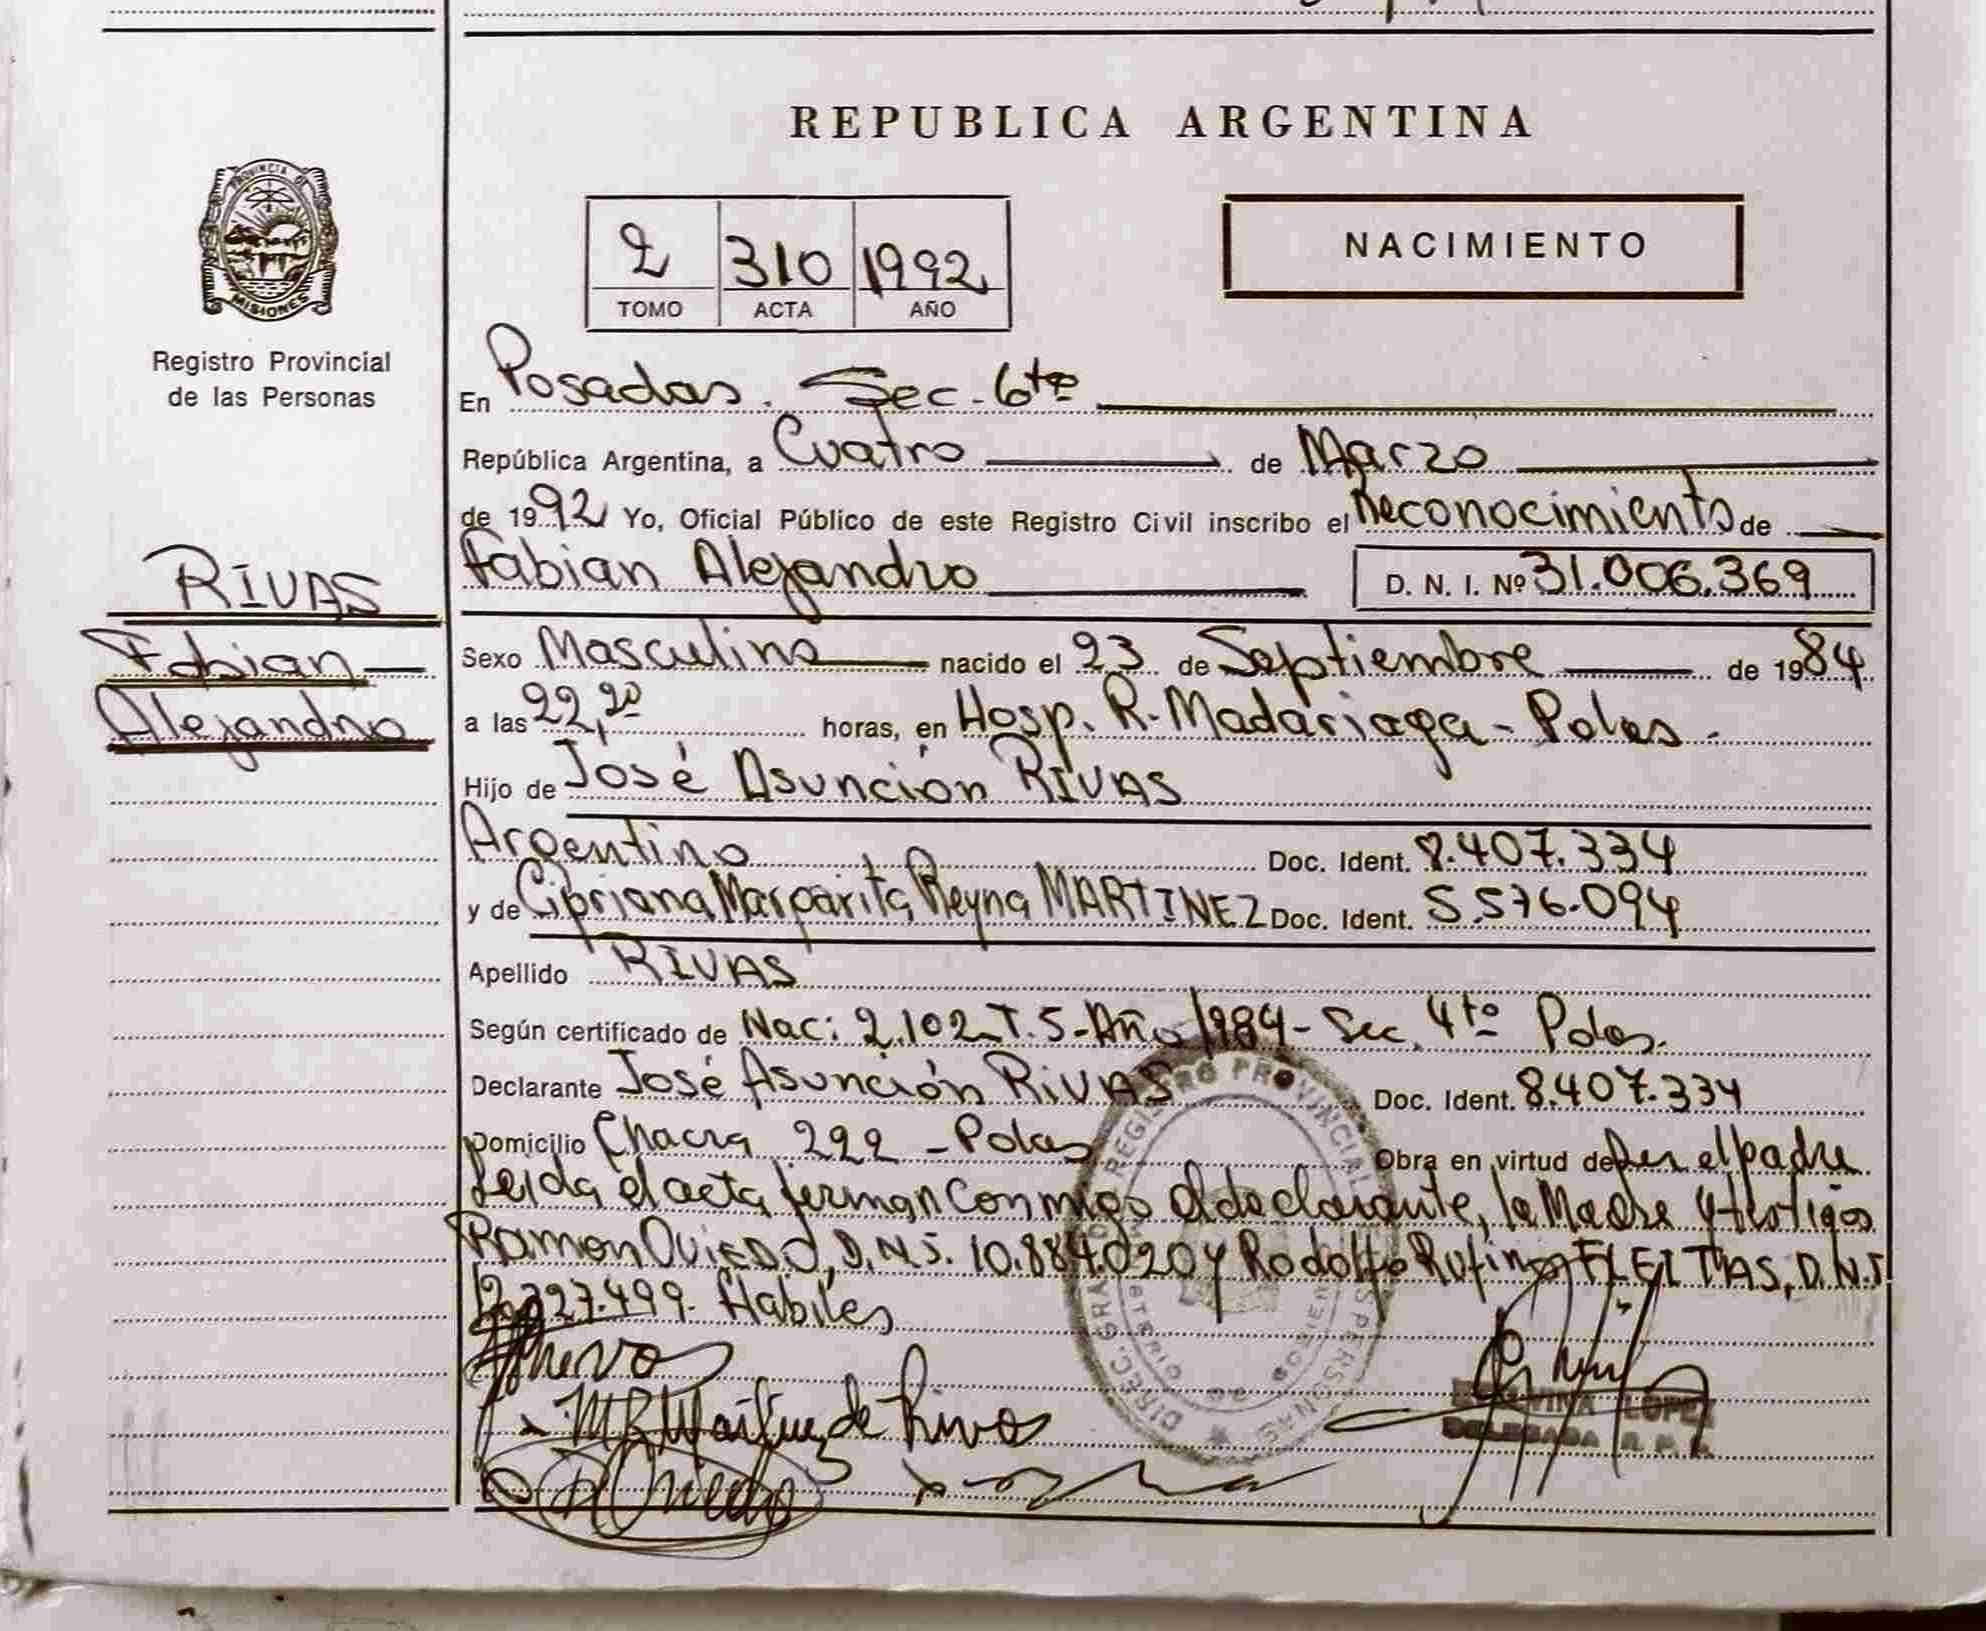 REPUBLICA ARGENTINA
PROVINCIA DE
MISIONES
Registro Provincial
de las Personas
2 310 1992
TOMO ACTA AÑO
NACIMIENTO
En Posadas. Sec. 6ta
República Argentina, a Cuatro de Marzo
de 1992 Yo, Oficial Público de este Registro Civil inscribo el Reconocimiento de
RIVAS
Fabian
Alejandro
Fabian Alejandro D. N. I. Nº 31.006.369
Sexo Masculino nacido el 23 de Septiembre de 1984
a las 22,20 horas, en Hosp. R. Madariaga - Pdas.
Hijo de José Asunción RIVAS
Argentino Doc. Ident. 8.407.334
y de Cipriana Margarita Reyna MARTINEZ Doc. Ident. 5.576.094
Apellido RIVAS
Según certificado de Nac: 2.102. T. 5 - Año 1984 - Sec. 4ta Pdas.
Declarante José Asunción RIVAS Doc. Ident. 8.407.334
Domicilio Chacra 222 - Pdas Obra en virtud de Ser el padre
Leida el acta firman conmigo el declarante, la Madre y testigos
Ramon OVIEDO, D.N.I. 10.884.020 y Rodolfo Rufino FLEITAS, D.N.I
12.327.499. Habiles
DIREC. GRAL. DE REGISTRO PROVINCIAL DE LAS PERSONAS
MINISTERIO DE GOBIERNO
de Rivas
LOPEZ
DELEGADA R. P. P.